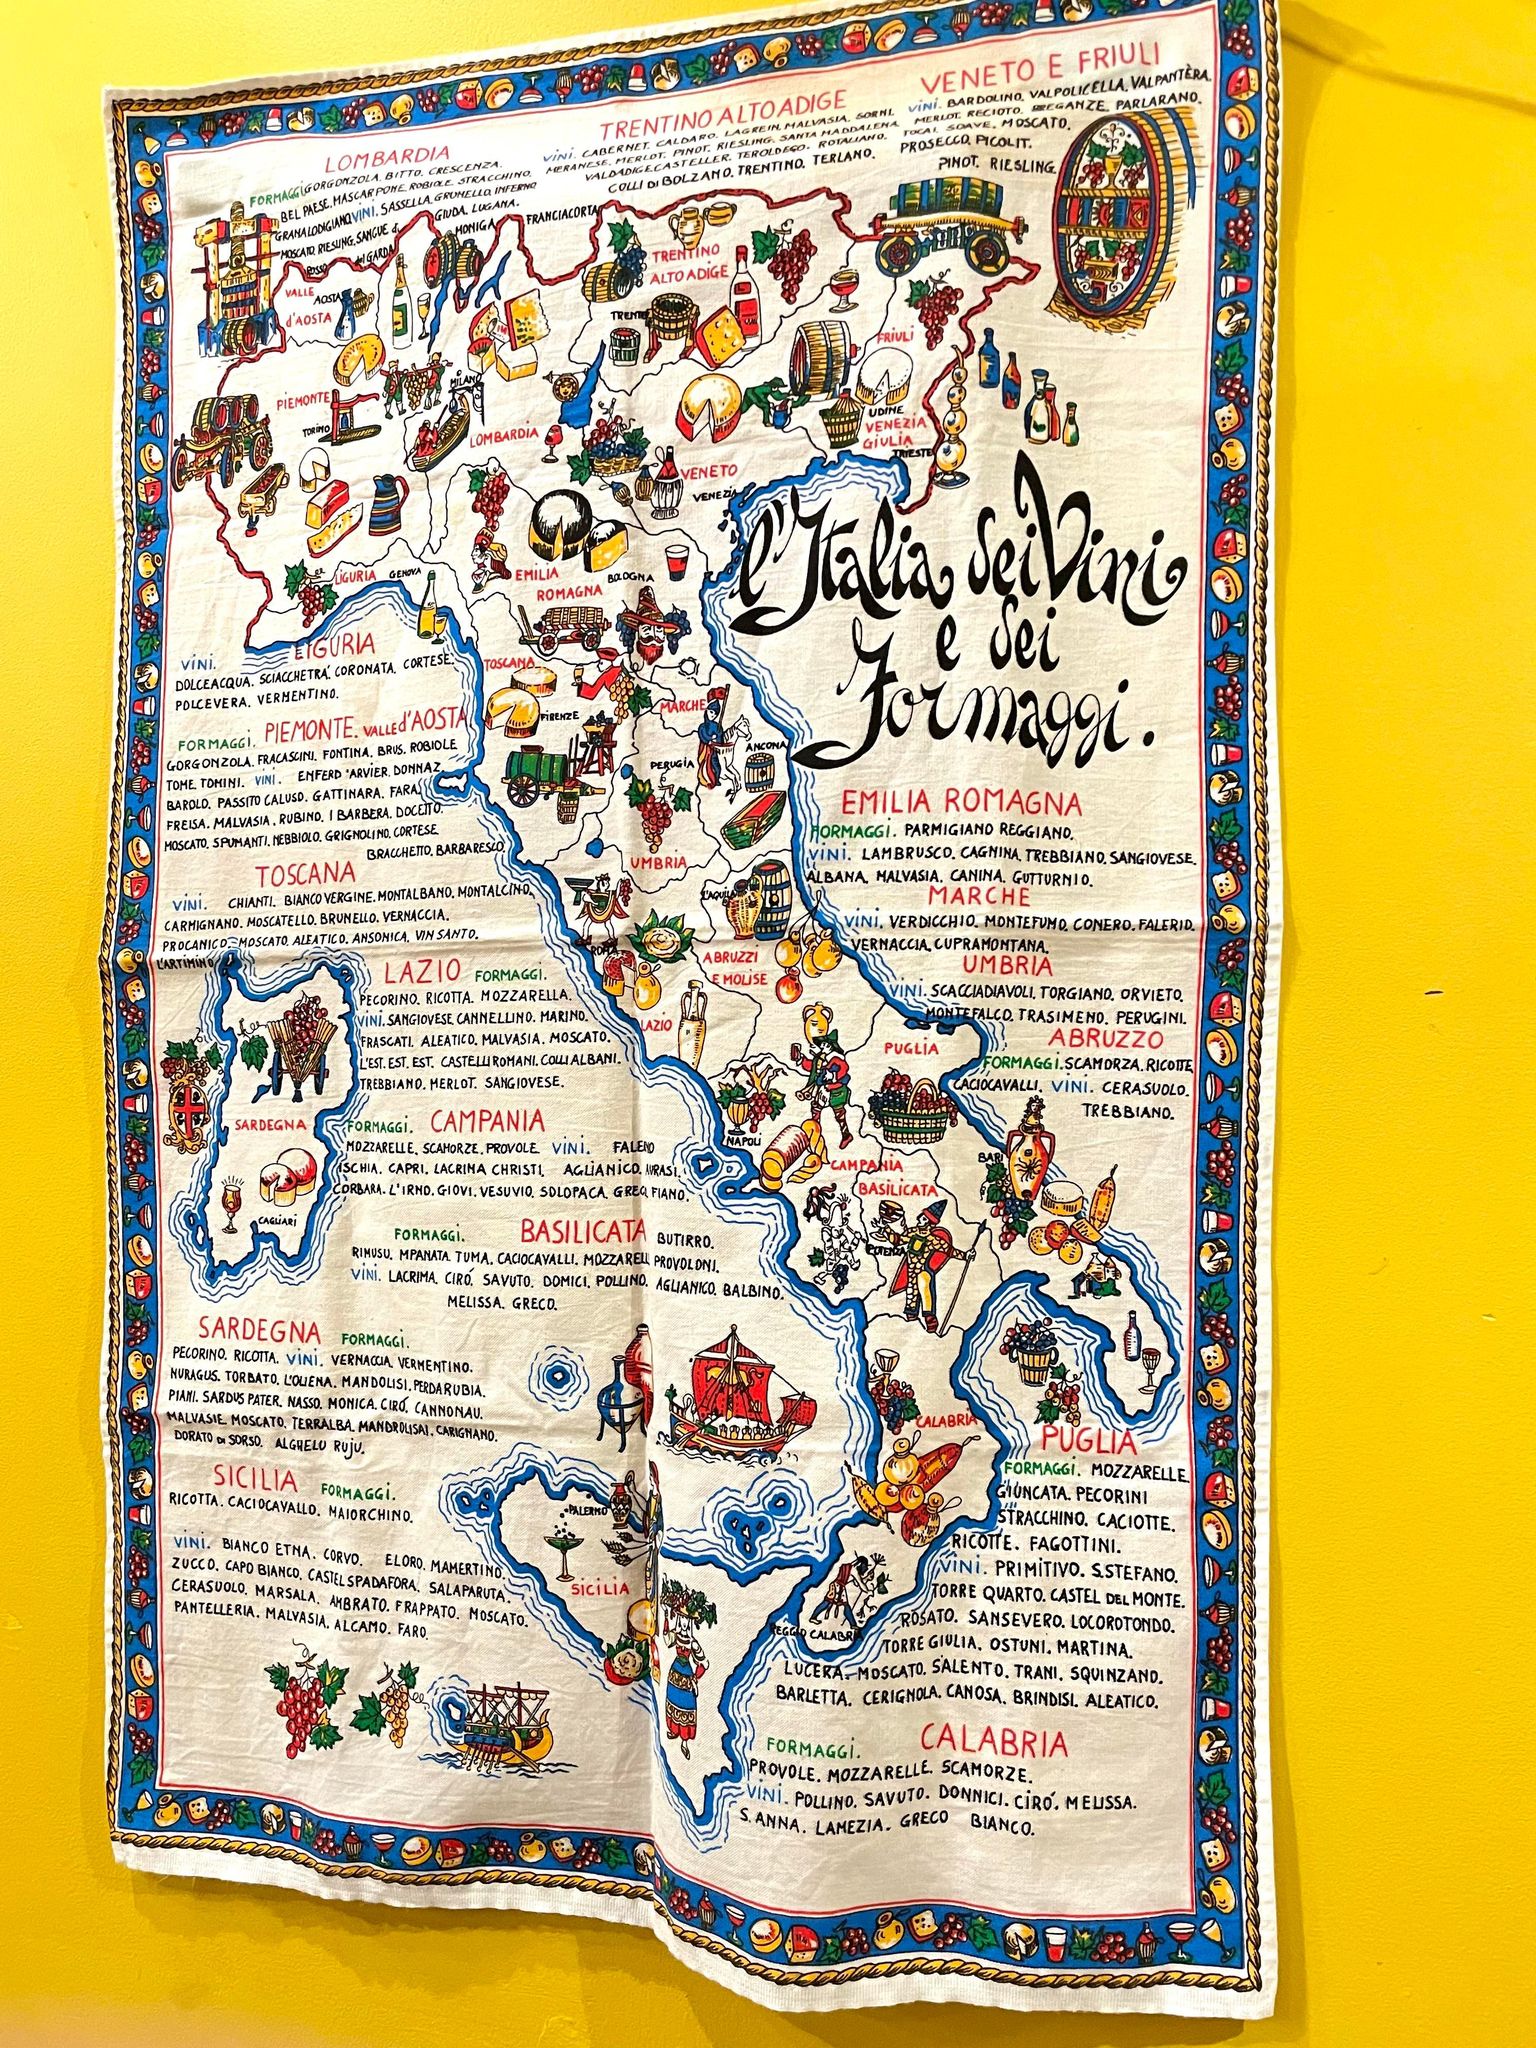 VENETO E FRIULI
vini. BARDOLINO. VALPOLICELLA. VALPANTÈRA.
MERLOT. RECIOTO. BREGANZE. PARLARANO.
TOCAI. SOAVE. MOSCATO.
PROSECCO. PICOLIT.
PINOT. RIESLING.
TRENTINO ALTO ADIGE
vini. CABERNET. CALDARO. LAGREIN. MALVASIA. SORNI.
MERANESE. MERLOT. PINOT. RIESLING. SANTA MADDALENA
VALDADIGE. CASTELLER. TEROLDEGO. ROTALIANO.
COLLI DI BOLZANO. TRENTINO. TERLANO.
LOMBARDIA
FORMAGGI GORGONZOLA. BITTO. CRESCENZA.
BEL PAESE. MASCARPONE. ROBIOLE. STRACCHINO.
GRANA LODIGIANO VINI. SASSELLA. GRUMELLO. INFERNO
MOSCATO. RIESLING. SANGUE di GIUDA. LUGANA.
ROSSO del GARDA MONIGA FRANCIACORTA
VALLE d'AOSTA
AOSTA
TRENTINO
ALTO ADIGE
TRENTO
FRIULI
PIEMONTE
TORINO
MILANO
LOMBARDIA
UDINE
VENEZIA
GIULIA
TRIESTE
VENETO
VENEZIA
l'Italia dei Vini
e dei
Formaggi.
LIGURIA
GENOVA
EMILIA
ROMAGNA
BOLOGNA
TOSCANA
FIRENZE
MARCHE
ANCONA
PERUGIA
UMBRIA
L'AQUILA
ROMA
ABRUZZI
E MOLISE
LAZIO
PUGLIA
NAPOLI
CAMPANIA
BARI
BASILICATA
POTENZA
CALABRIA
REGGIO CALABRIA
PALERMO
SICILIA
SARDEGNA
CAGLIARI
LIGURIA
VINI.
DOLCEACQUA. SCIACCHETRÁ. CORONATA. CORTESE.
POLCEVERA. VERMENTINO.
PIEMONTE. VALLE d'AOSTA
FORMAGGI.
GORGONZOLA. FRACASCINI. FONTINA. BRUS. ROBIOLE
TOME. TOMINI. VINI. ENFERD'ARVIER. DONNAZ.
BAROLO. PASSITO CALUSO. GATTINARA. FARA.
FREISA. MALVASIA. RUBINO. I BARBERA. DOCETTO.
MOSCATO. SPUMANTI. NEBBIOLO. GRIGNOLINO. CORTESE
BRACCHETTO. BARBARESCO
TOSCANA
VINI. CHIANTI. BIANCO VERGINE. MONTALBANO. MONTALCINO.
CARMIGNANO. MOSCATELLO. BRUNELLO. VERNACCIA.
PROCANICO. MOSCATO. ALEATICO. ANSONICA. VIN SANTO.
L'ARTIMINO
LAZIO FORMAGGI.
PECORINO. RICOTTA. MOZZARELLA.
VINI. SANGIOVESE. CANNELLINO. MARINO.
FRASCATI. ALEATICO. MALVASIA. MOSCATO.
L'EST. EST. EST. CASTELLI ROMANI. COLLI ALBANI.
TREBBIANO. MERLOT. SANGIOVESE.
FORMAGGI. CAMPANIA
MOZZARELLE. SCAMORZE. PROVOLE. VINI.
ISCHIA. CAPRI. LACRIMA CHRISTI. AGLIANICO.
CORBARA. L'IRNO. GIOVI. VESUVIO. SOLOPACA. GRECO FIANO.
FORMAGGI. BASILICATA BUTIRRO.
RIMUSU. MPANATA TUMA. CACIOCAVALLI. MOZZARELL PROVOLONI.
VINI. LACRIMA. CIRÓ. SAVUTO. DOMICI. POLLINO. AGLIANICO. BALBINO.
MELISSA. GRECO.
SARDEGNA FORMAGGI.
PECORINO. RICOTTA. VINI. VERNACCIA. VERMENTINO.
NURAGUS. TORBATO. L'OLIENA. MANDOLISI. PERDA RUBIA.
PIANI. SARDUS PATER. NASSO. MONICA. CIRÓ. CANNONAU.
MALVASIE. MOSCATO. TERRALBA. MANDROLISAI. CARIGNANO.
DORATO DI SORSO. ALGHELU RUJU.
SICILIA FORMAGGI.
RICOTTA. CACIOCAVALLO. MAIORCHINO.
VINI. BIANCO ETNA. CORVO. ELORO. MAMERTINO.
ZUCCO. CAPO BIANCO. CASTEL SPADAFORA. SALAPARUTA.
CERASUOLO. MARSALA. AMBRATO. FRAPPATO. MOSCATO.
PANTELLERIA. MALVASIA. ALCAMO. FARO.
EMILIA ROMAGNA
FORMAGGI. PARMIGIANO REGGIANO.
VINI. LAMBRUSCO. CAGNINA. TREBBIANO. SANGIOVESE.
ALBANA. MALVASIA. CANINA. GUTTURNIO.
MARCHE
VINI. VERDICCHIO. MONTEFUMO. CONERO. FALERIO.
VERNACCIA. CUPRAMONTANA.
UMBRIA
VINI. SCACCIADIAVOLI. TORGIANO. ORVIETO.
MONTEFALCO. TRASIMENO. PERUGINI.
ABRUZZO
FORMAGGI. SCAMORZA. RICOTTE.
CACIOCAVALLI. VINI. CERASUOLO.
TREBBIANO.
PUGLIA
FORMAGGI. MOZZARELLE.
GIUNCATA. PECORINI
STRACCHINO. CACIOTTE.
RICOTTE. FAGOTTINI.
VINI. PRIMITIVO. S.STEFANO.
TORRE QUARTO. CASTEL DEL MONTE.
ROSATO. SANSEVERO. LOCOROTONDO.
TORRE GIULIA. OSTUNI. MARTINA.
LUCERA. MOSCATO. SALENTO. TRANI. SQUINZANO.
BARLETTA. CERIGNOLA. CANOSA. BRINDISI. ALEATICO.
FORMAGGI. CALABRIA
PROVOLE. MOZZARELLE. SCAMORZE.
VINI. POLLINO. SAVUTO. DONNICI. CIRÓ. MELISSA.
S. ANNA. LAMEZIA. GRECO BIANCO.